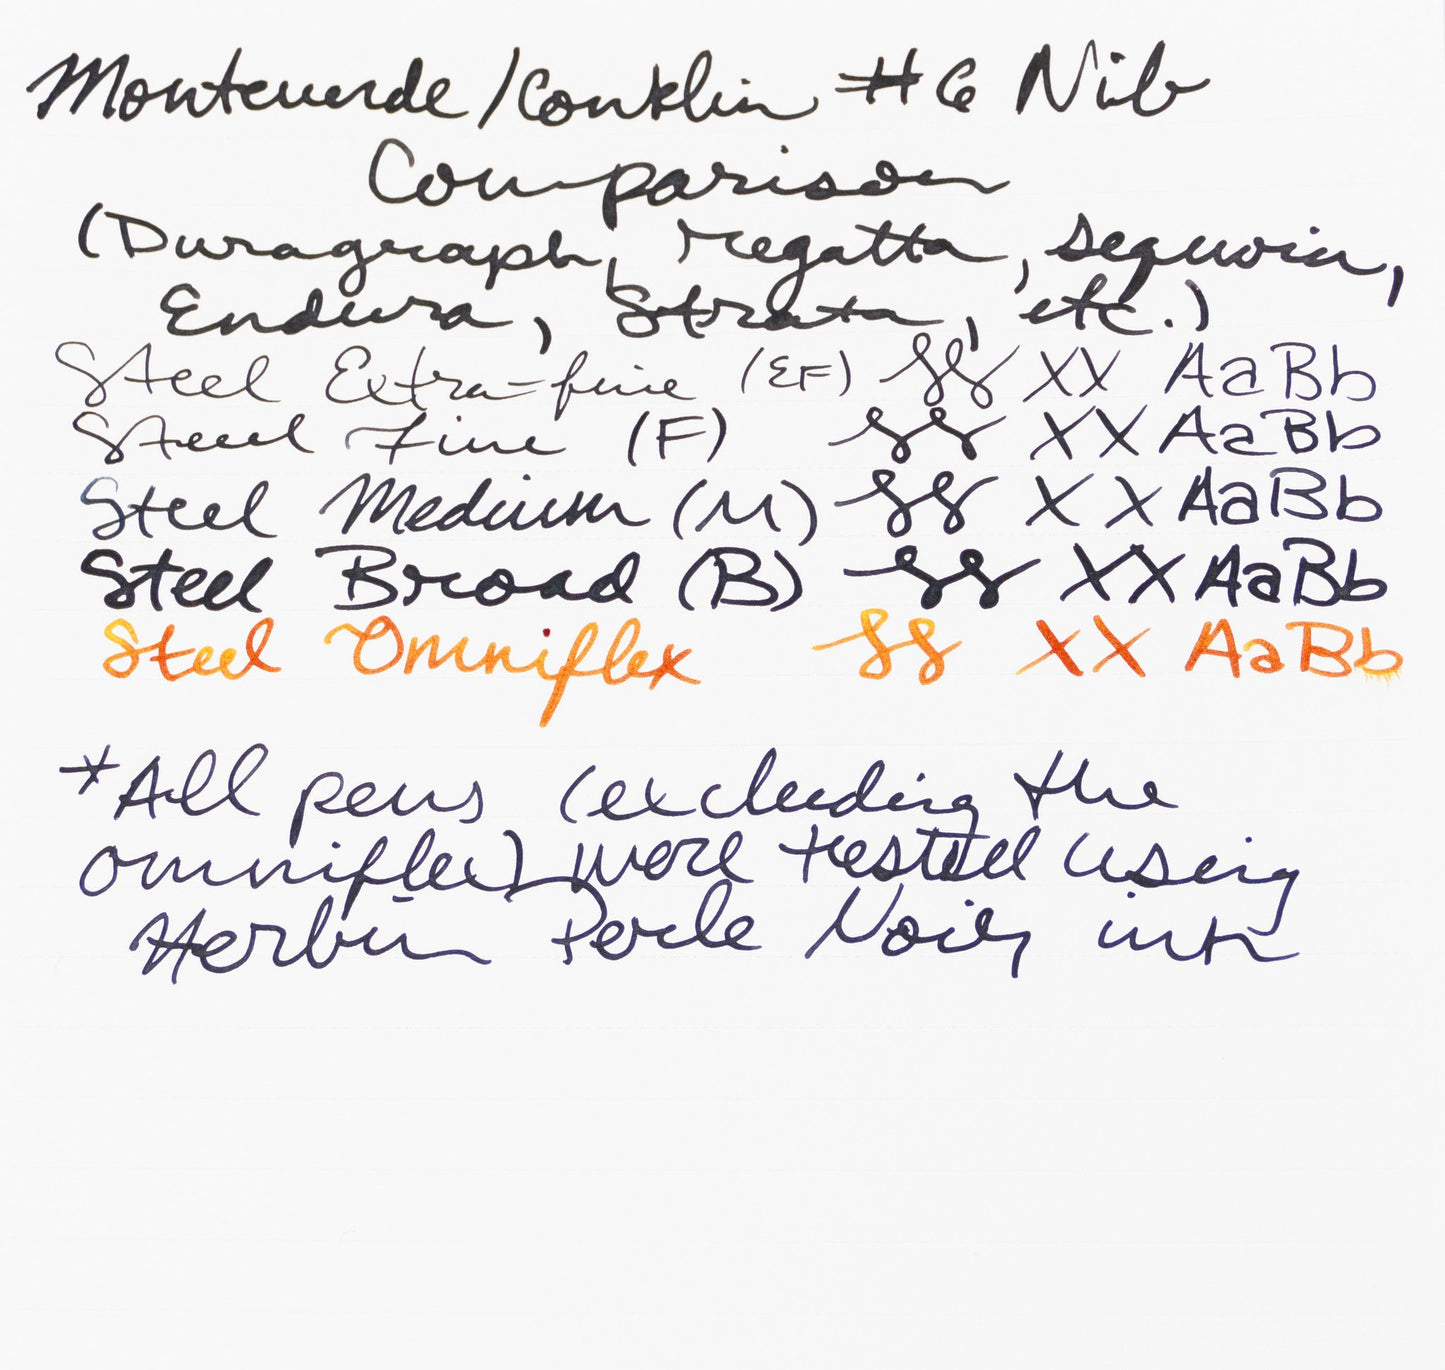 Monteverde/Conklin #6 Nib
Comparison
(Duragraph, regatta, sequoia,
Endura, Strata, etc.)
Steel Extra-fine (EF) SS XX AaBb
Steel Fine (F) SS XX AaBb
Steel Medium (M) SS XX AaBb
Steel Broad (B) SS XX AaBb
Steel Omniflex SS XX AaBb
*All pens (excluding the
omniflex) were tested using
Herbin Perle Noir ink